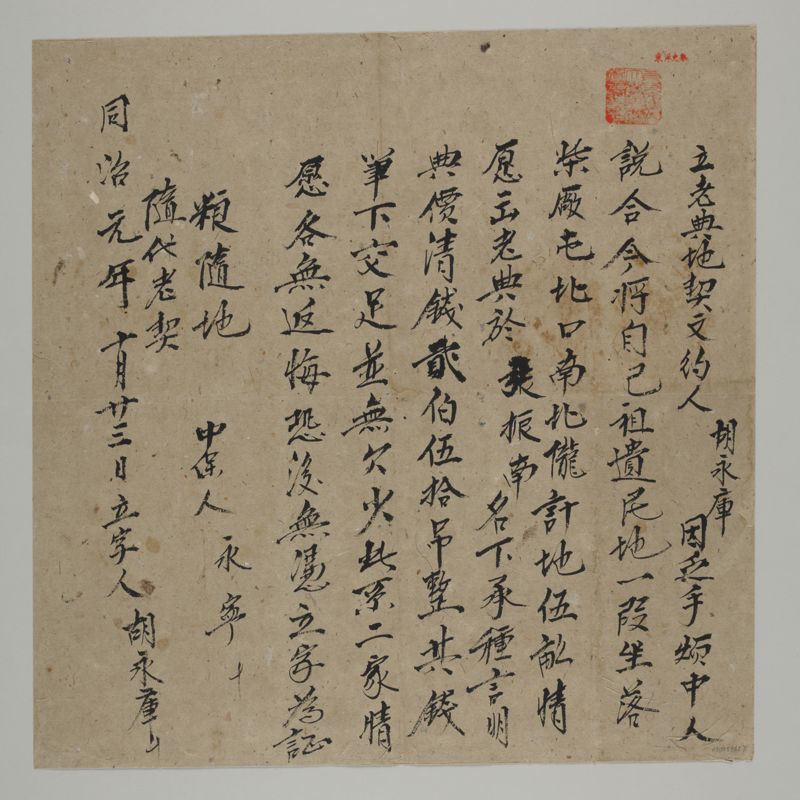 立老典地契文約人胡永庫因乏手煩中人
說合今將自己祖遺民地一段坐落
柴廠屯北口南北儱計地伍畝情
愿出老典於張振南名下承種言明
典價清錢貳伯伍拾吊整其錢
筆下交足並無欠少此系二家情
愿各無返悔恐後無憑立字為証
粮隨地
中保人永寧十
隨代老契
同治元年十月廿三日立字人胡永庫十